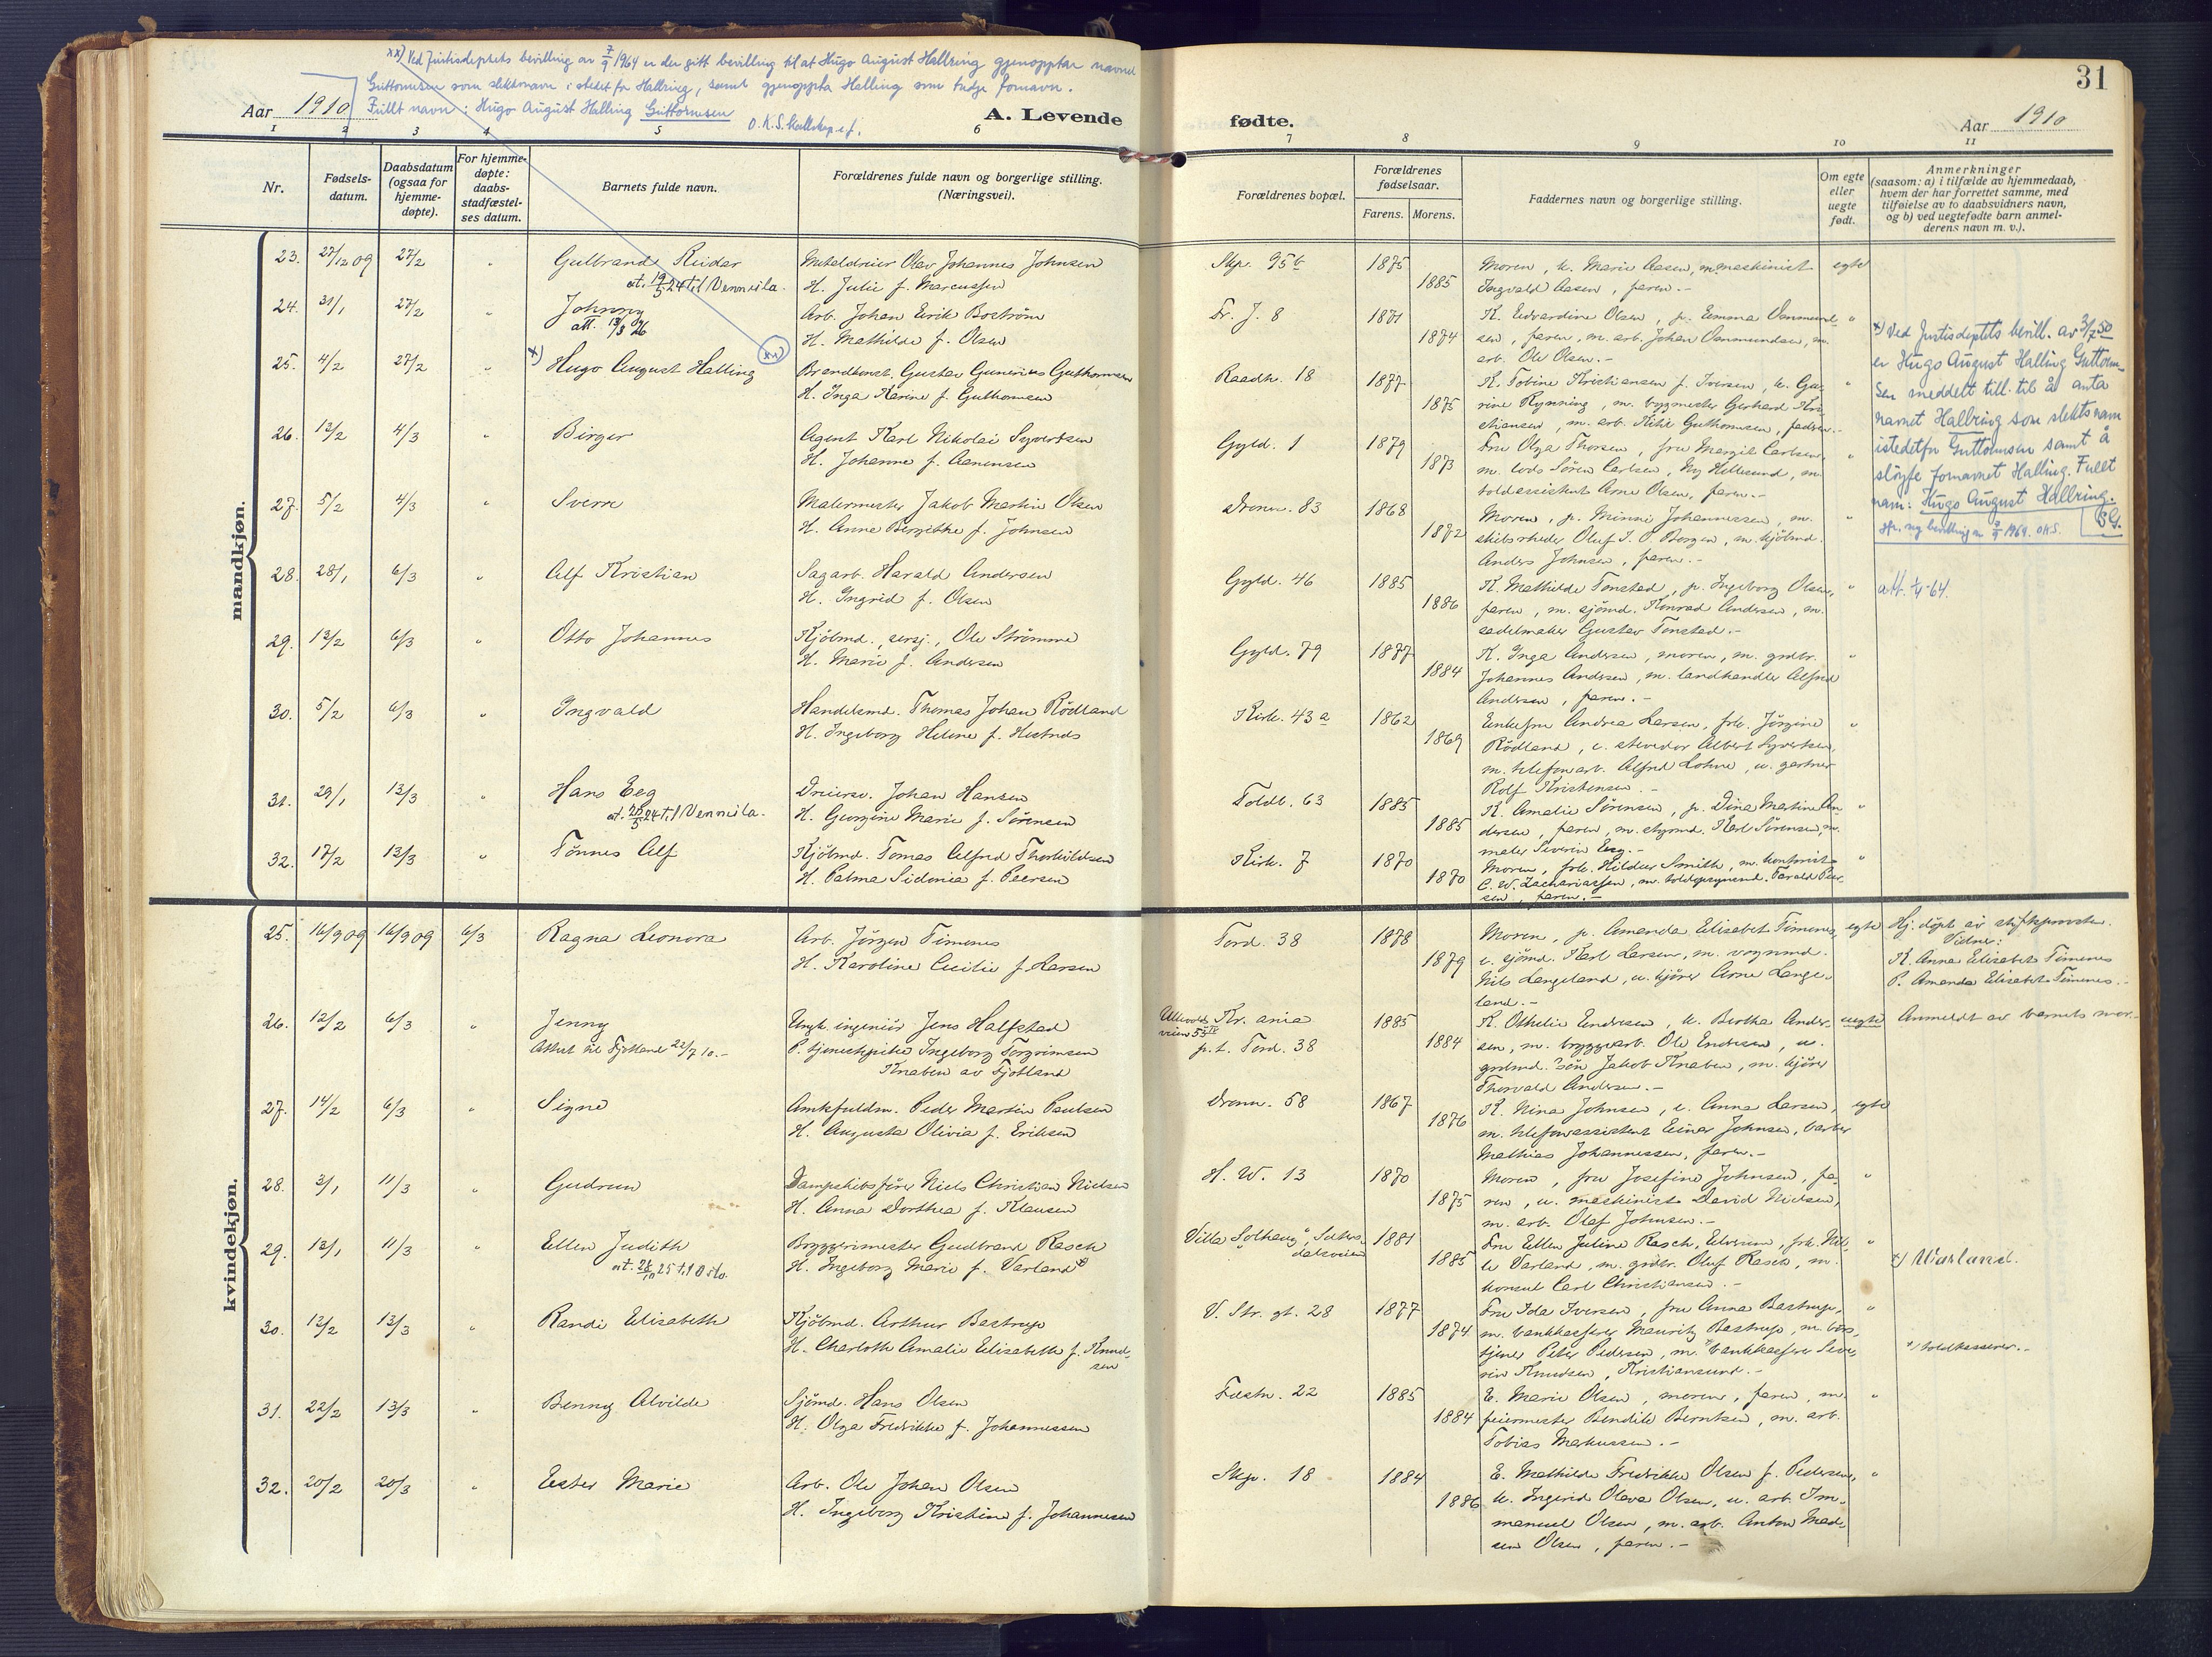 xx) Ved Justisdeptets bevilling av 7/9 1964 er der gitt bevilling til at Hugo August Hallring gjenopptar navnet
Guttormsen som slektsnavn i stedet for Hallring, samt gjenoppta Halling som tredje fornavn.
Fullt navn: Hugo August Halling Guttormsen
Aar 1910
A. Levende
fødte.
Aar 1910
31
1 2 3 4 5 6 7 8 9 10 11
Nr.
Fødsels-
datum.
Daabsdatum
(ogsaa for
hjemme-
døpte).
For hjemme-
døpte:
daabs-
stadfæstel-
ses datum.
Barnets fulde navn.
Forældrenes fulde navn og borgerlige stilling.
(Næringsvei).
Forældrenes bopæl.
Forældrenes
fødselsaar.
Farens. Morens.
Faddernes navn og borgerlige stilling.
Om egte
eller
uegte
født.
Anmerkninger
(saasom: a) i tilfælde av hjemmedaab,
hvem der har forrettet samme, med
tilføielse av to daabsvidners navn,
og b) ved uegtefødte barn anmel-
derens navn m. v.).
mandkjøn.
23. 27/12 09 27/2 " Gulbrand Reidar Metaldreier Olav Johannes Johnsen Skp. 95b 1875 Moren, u. Marie Aasen, m. maskinist egte
at. 19/5 24 til Vennesla. H. Julie f. Marcussen 1885 Ingvald Aasen, faren.-
24. 31/1 27/2 " Johnny Arb. Johan Eirik Boström Fr. J. 8 1871 K. Edvardine Olsen, p. Emma Osmund- "
att. 13/3 26 H. Mathilde f. Olsen 1874 sen, faren, m. arb. Johan Osmundsen, m.
arb. Ole Olsen.-
25. 4/2 27/2 " x) Hugo August Halling xx) Brandkonst. Gustav Gunerius Guthormsen Raadh. 18 1877 K. Tobine Kristiansen f. Iversen, u. Gu- "
H. Inga Karine f. Guthormsen 1875 rine Rynning, m. bygmester Gerhard Kri-
stiansen, m. arb. Ketil Guthormsen, faderen.-
26. 13/2 4/3 " Birger Agent Karl Nikolai Syvertsen Gyld. 1 1879 Fru Olga Thorsen, fru Margit Carlsen, "
H. Johanne f. Aanensen 1873 m. lods Sören Carlsen, Ny Hellesund, m.
toldassistent Arne Olsen, faren.-
27. 5/2 4/3 " Sverre Malermester Jakob Martin Olsen Dronn. 83 1868 Moren, p. Minni Johannessen, m. "
H. Anne Bergitte f. Johnsen 1872 skibsrheder Oluf I. P. Borgen, m. kjöbmd.
Anders Johnsen, faren.-
28. 28/1 6/3 " Alf Kristian Sagarb. Harald Andersen Gyld. 46 1885 K. Mathilde Tonstad, p. Ingeborg Olsen, " att. 64.
H. Ingrid f. Olsen 1886 faren, m. sjömd. Konrad Andersen, m.
sadelmaker Gustav Tonstad.-
29. 13/2 6/3 " Otto Johannes Kjöbmd., sersj., Ole Strömme Gyld. 79 1877 K. Inga Andersen, moren, m. grdbr. "
H. Marie f. Andersen 1884 Johannes Andersen, m. landhandler Alfred
Andersen, faren.-
30. 5/2 6/3 " Ingvald Handelsmd. Thomas Johan Rödland Kirk. 43a 1862 Enkefru Andrea Larsen, frk. Jörgine "
H. Ingeborg Helene f. Hestnes 1869 Rödland, e. stevedor Albert Syvertsen,
m. telefonarb. Alfred Lohne, u. gartner
Rolf Kristensen.-
31. 29/1 13/3 " Hans Eeg Dreiersv. Johan Hansen Toldb. 63 1885 K. Amalie Sörensen, p. Dina Martine An- "
at. 26/5 24 til Vennesla. H. Georgine Marie f. Sörensen 1885 dersen, faren, m. styrmd. Karl Sörensen, m.
maler Severin Eeg.-
32. 17/2 13/3 " Tönnes Alf Kjöbmd. Tomas Alfred Thorkildsen Kirk. 7 1870 Moren, frk. Hildur Smith, m. kontorist "
H. Palma Sidonia f. Peersen 1870 C. W. Zachariassen, m. toldopsynsmd. Tarald Peer-
sen, faren.-
x) Ved Justisdeptets bevill. av 3/7 50
er Hugo August Halling Guttorm-
sen meddelt till. til å anta
navnet Hallring som slektsnavn
istedetfor Guttormsen samt å
sløyfe fornavnet Halling. Fullt
navn: Hugo August Hallring.
jfr. ny bevilling av 7/9 1964. OKS.
kvindekjøn.
25. 16/9 09 16/9 09 6/3 Ragna Leonora Arb. Jörgen Timenes Tord. 38 1878 Moren, p. Amanda Elisabet Timenes, egte Hj. döpt av stiftsprovsten.
H. Karoline Cecilie f. Larsen 1879 e. sjömd. Karl Larsen, m. vognmd. Vidner:
Nils Langeland, u. kjörer Arne Lange- K. Anna Elisabet Timenes
land.- P. Amanda Elisabet Timenes.-
26. 12/2 6/3 " Jenny Ungk. ingeniör Jens Halfstad Ullevolds Kr. ania 1885 K. Othelie Endresen, u. Bertha Ander- uegte Anmeldt av barnets mor.-
Attest til Fjotland 22/7 10.- P. tjenestepike Ingeborg Torgrimsen veien 55 p. t. Tord. 38 1884 sen, m. bryggearb. Ole Endresen, u.
Knaben av Fjotland grdmd. sön Jakob Knaben, m. kjörer
Thorvald Andersen.-
27. 14/2 6/3 " Signe Amtsfuldm. Peder Martin Paulsen Dronn. 58 1867 K. Nina Johnsen, e. Anna Larsen, egte
H. Augusta Olivia f. Eriksen 1876 m. telefonassistent Einar Johnsen, barber
Mathias Johannessen, faren.-
28. 3/1 11/3 " Gudrun Dampskibsförer Niels Christian Nielsen H. W. 13 1870 Moren, fru Josefine Johnsen, fa- "
H. Anna Dorthea f. Klausen 1875 ren, u. maskinist David Nielsen,
m. arb. Olaf Johnsen.-
29. 13/1 11/3 " Ellen Judith Bryggerimester Gudbrand Rasch Villa "Solhaug", Seters- 1881 Fru Ellen Juline Rasch, Elverum, frk. Hel- "
at. 28/10 25 til Oslo. H. Ingeborg Marie f. Varland x) dalsveien 1885 le Varland, m. grdbr. Oluf Rasch, m. x) Warland.
konsul Carl Christiansen.-
30. 13/2 13/3 " Randi Elisabeth Kjöbmd. Arthur Bastrup V. Str. gt. 28 1877 Fru Ida Iversen, fru Anna Bastrup, "
H. Charlotte Amalie Elisabeth f. Knud- 1874 m. bankkasserer Mauritz Bastrup, m. börs-
sen tjener Peter Pedersen, m. x) bankkasserer Seve- x) toldkasserer.-
rin Knudsen, Kristiansund.-
31. 22/2 13/3 " Benny Alvilde Sjömd. Hans Olsen Fæstn. 22 1885 E. Marie Olsen, moren, faren, m. "
H. Olga Fredrikke f. Johannessen 1884 feiermester Bendik Berntsen, m. arb.
Tobias Markussen.-
32. 20/2 20/3 " Ester Marie Arb. Ole Johan Olsen Skp. 18 1884 E. Mathilde Fredrikke Olsen f. Pedersen, "
H. Ingeborg Kristine f. Johannesen 1886 u. Ingerid Olava Olsen, u. arb. Im-
manuel Olsen, m. arb. Anton Mad-
sen Olsen, faren.-